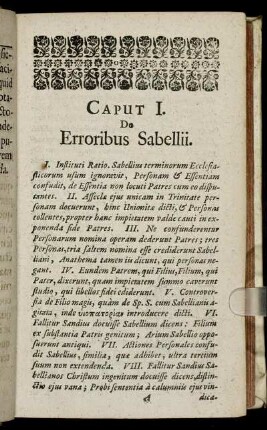 CAPUT I.
De
Erroribus Sabellii.
I. Instituti Ratio. Sabellius terminorum Ecclesia-
sticorum usum ignoravit, Personam & Essentiam
confudit, de Essentia non locuti Patres cum eo dispu-
tantes. II. Asseclæ ejus unicam in Trinitate per-
sonam docuerunt, hinc Unionitæ dicti, & Personas
tollentes, propter hanc impietatem valde cauti in ex-
ponenda fide Patres. III. Ne confunderentur
Personarum nomina operam dederunt Patres; tres
Personas, tria saltem nomina esse crediderunt Sabel-
liani, Anathema tamen iis dicunt, qui personas ne-
gant. IV. Eundem Patrem, qui Filius, Filium, qui
Pater, dixerunt, quam impietatem summo caverunt
studio, qui libellos fidei ediderunt. V. Controver-
sia de Filio magis, quàm de Sp. S. cum Sabellianis a-
gitata, inde υἱοπατορίαν introducere dicti. VI.
Fallitur Sandius docuisse Sabellium dicens: Filium
ex substantia Patris genitum; Arium Sabellio oppo-
suerunt antiqui. VII. Actiones Personales confu-
dit Sabellius, similia, quæ adhibet, ultra tertium
suum non extendenda. VIII. Fallitur Sandius Sa-
bellianos Christum ingenitum docuisse dicens, distin-
ctio ejus vana; Probi sententia à calumniis ejus vin-
A
dica-